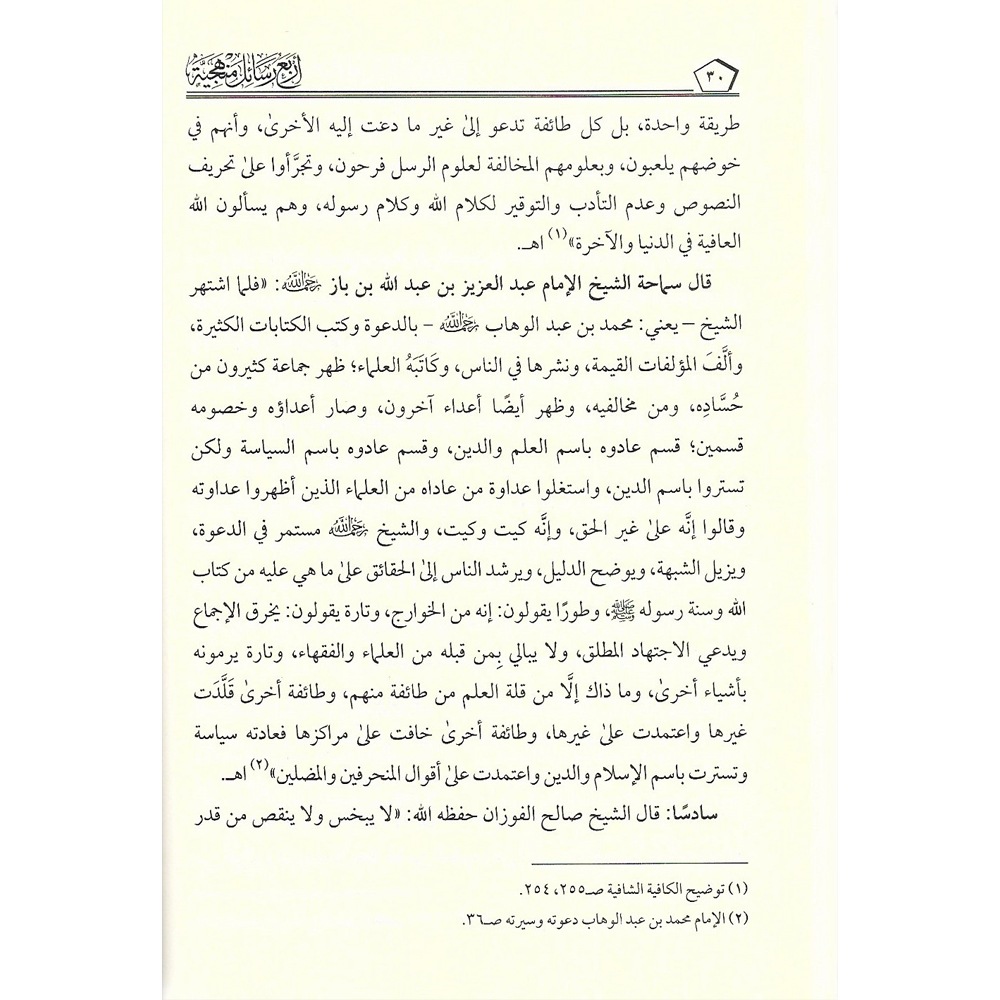 أربع رسائل منهجية
٣٠
طريقة واحدة، بل كل طائفة تدعو إلىٰ غير ما دعت إليه الأخرىٰ، وأنهم في
خوضهم يلعبون، وبعلومهم المخالفة لعلوم الرسل فرحون، وتجرَّأوا علىٰ تحريف
النصوص وعدم التأدب والتوقير لكلام الله وكلام رسوله، وهم يسألون الله
العافية في الدنيا والآخرة»(١) اهـ.
قال سماحة الشيخ الإمام عبد العزيز بن عبد الله بن باز رحمه الله: «فلما اشتهر
الشيخ – يعني: محمد بن عبد الوهاب رحمه الله – بالدعوة وكتب الكتابات الكثيرة،
وألَّفَ المؤلفات القيمة، ونشرها في الناس، وكَاتَبَهُ العلماء؛ ظهر جماعة كثيرون من
حُسَّادِه، ومن مخالفيه، وظهر أيضًا أعداء آخرون، وصار أعداؤه وخصومه
قسمين؛ قسم عادوه باسم العلم والدين، وقسم عادوه باسم السياسة ولكن
تستروا باسم الدين، واستغلوا عداوة من عاداه من العلماء الذين أظهروا عداوته
وقالوا إنَّه علىٰ غير الحق، وإنَّه كيت وكيت، والشيخ رحمه الله مستمر في الدعوة،
ويزيل الشبهة، ويوضح الدليل، ويرشد الناس إلىٰ الحقائق علىٰ ما هي عليه من كتاب
الله وسنة رسوله ﷺ، وطورًا يقولون: إنه من الخوارج، وتارة يقولون: يخرق الإجماع
ويدعي الاجتهاد المطلق، ولا يبالي بِمن قبله من العلماء والفقهاء، وتارة يرمونه
بأشياء أخرىٰ، وما ذاك إلَّا من قلة العلم من طائفة منهم، وطائفة أخرىٰ قَلَّدَت
غيرها واعتمدت علىٰ غيرها، وطائفة أخرىٰ خافت علىٰ مراكزها فعادته سياسة
وتسترت باسم الإسلام والدين واعتمدت علىٰ أقوال المنحرفين والمضلين»(٢) اهـ.
سادسًا: قال الشيخ صالح الفوزان حفظه الله: «لا يبخس ولا ينقص من قدر
(١) توضيح الكافية الشافية صـ٢٥٥، ٢٥٤.
(٢) الإمام محمد بن عبد الوهاب دعوته وسيرته صـ٣٦.